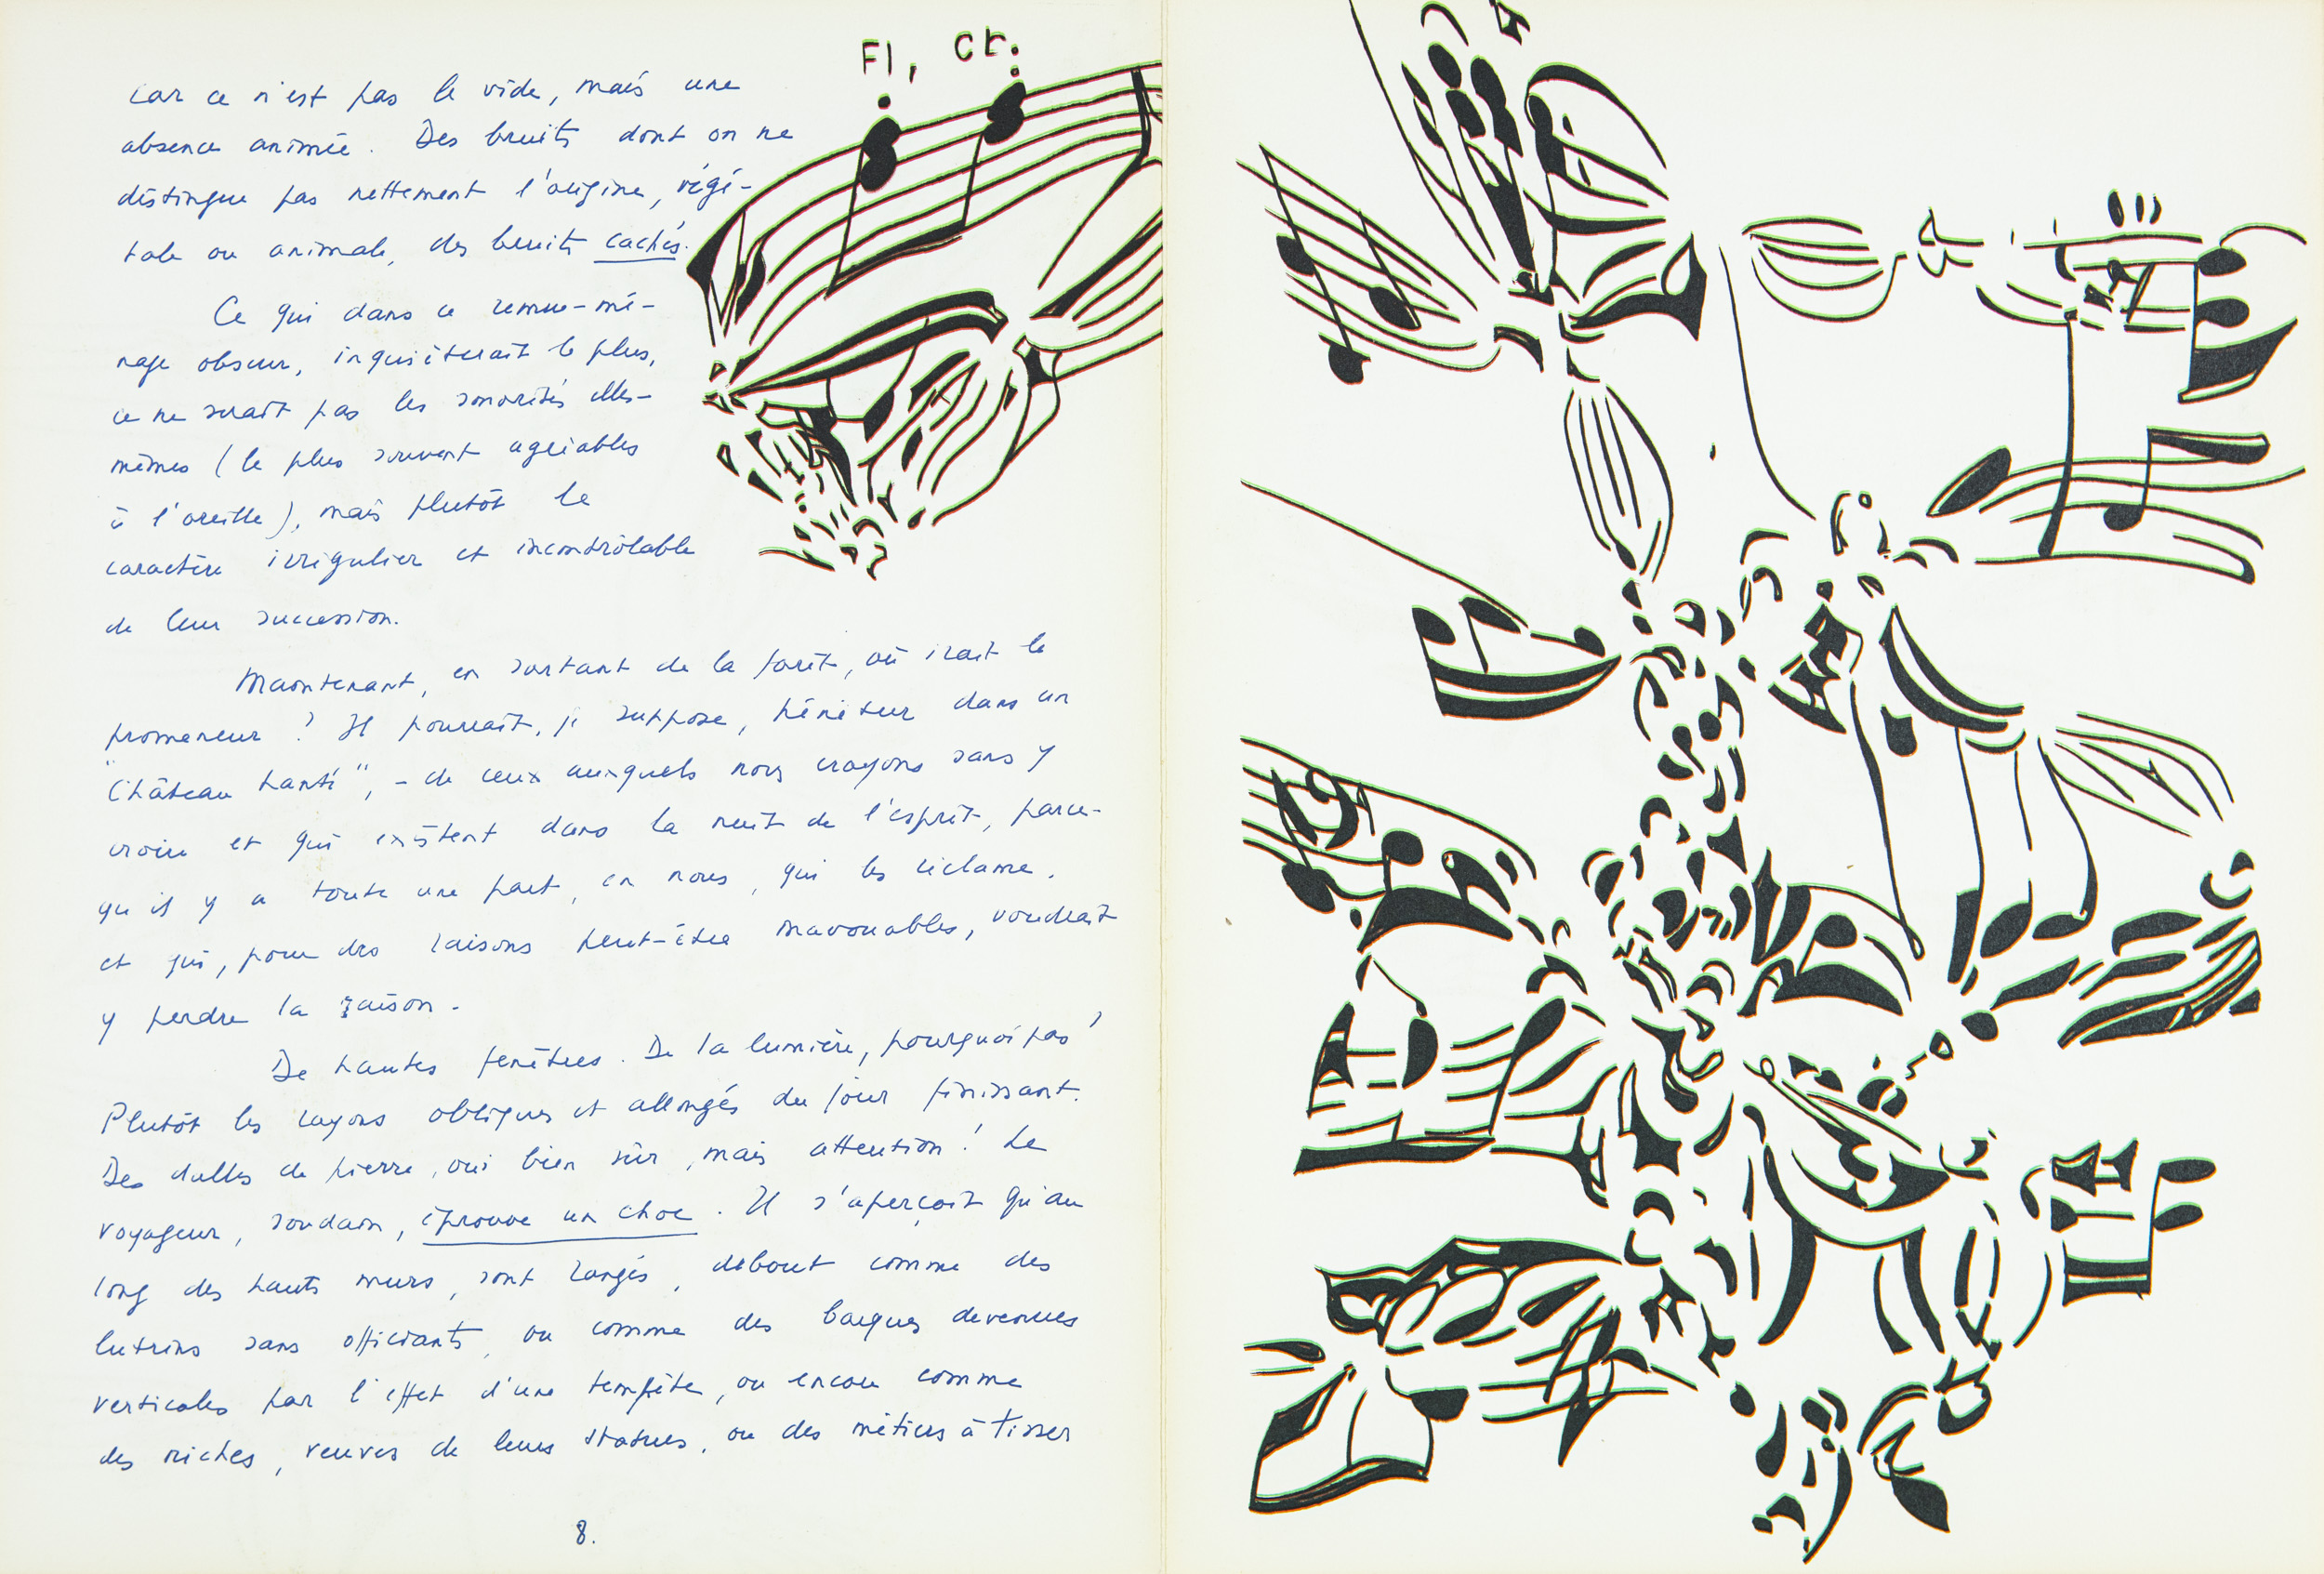 Fl, Cr.
car ce n'est pas le vide, mais une
absence animée. Des bruits dont on ne
distingue pas nettement l'origine, végé-
tale ou animale, des bruits cachés.
Ce qui dans ce remue-mé-
nage obscur, inquiéterait le plus,
ce ne serait pas les sonorités elles-
mêmes (le plus souvent agréables
à l'oreille), mais plutôt le
caractère irrégulier et incontrôlable
de leur succession.
Maintenant, en sortant de la forêt, où irait le
promeneur ? Il pourrait, je suppose, pénétrer dans un
"Château hanté", - de ceux auxquels nous croyons sans y
croire et qui existent dans la nuit de l'esprit, parce-
qu'il y a toute une part, en nous, qui les réclame,
et qui, pour des raisons peut-être inavouables, voudrait
y perdre la raison.
De hautes fenêtres. De la lumière, pourquoi pas ?
Plutôt les rayons obliques et allongés du jour finissant.
Des dalles de pierre, oui bien sûr, mais attention ! Le
voyageur, soudain, éprouve un choc. Il s'aperçoit qu'au
long des hauts murs, sont rangés, debout comme des
lutrins sans officiants, ou comme des barques devenues
verticales par l'effet d'une tempête, ou encore comme
des niches, veuves de leurs statues, ou des métiers à tisser
8.